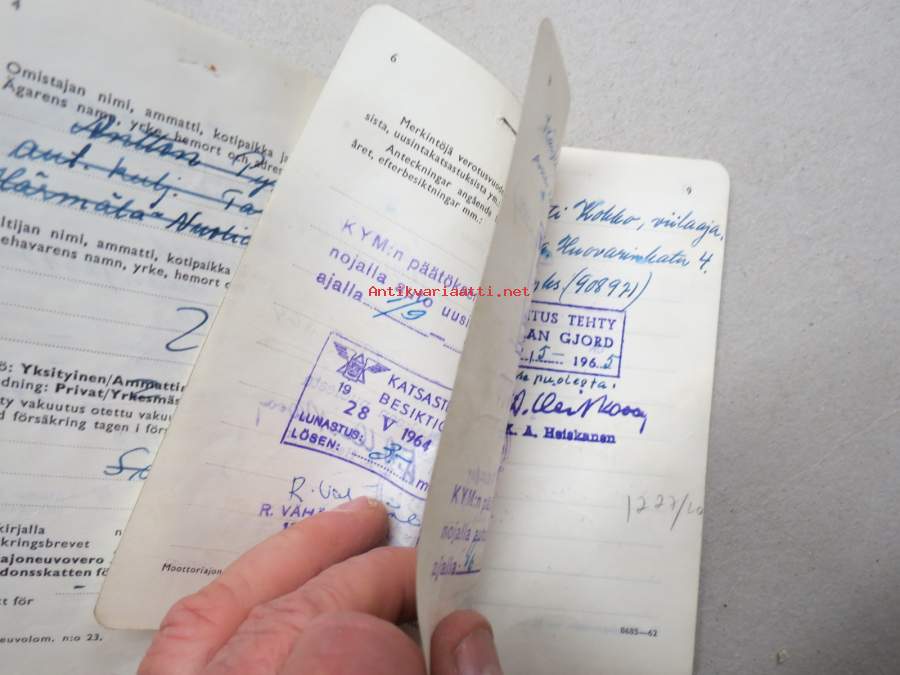 4
Omistajan nimi, ammatti, kotipaikka ja
Ägarens namn, yrke, hemort och adres
Härmälä
ltijan nimi, ammatti, kotipaikka
ehavarens namn, yrke, hemort o
2
ö: Yksityinen/Ammattin
dning: Privat/Yrkesmäs
ty vakuutus otettu vakuu
d försäkring tagen i förs
kirjalla
kringsbrevet
ajoneuvovero
donsskatten fö
tt för
neuvolom. n:o 23.
6
Merkintöjä verotusvuode
sista, uusintakatsastuksista ym.:
Anteckningar angående
året, efterbesiktningar mm.:
KYM:n päätökse
nojalla auto uusi
ajalla 1/9 —
KATSASTU
BESIKTIG
19
28 V 1964
LUNASTUS:
LÖSEN:
m
R. Väh
R. VÄHÄ
Moottoriajon
KYM:n p
nojalla auto
ajalla
9
ti Kokko, viilaaja,
Huovarinkatu 4.
ks (908971)
TTUS TEHTY
AN GJORD
5 – 1965
puolesta:
K. A. Heiskanen
8685—62
Antikvariaatti.net